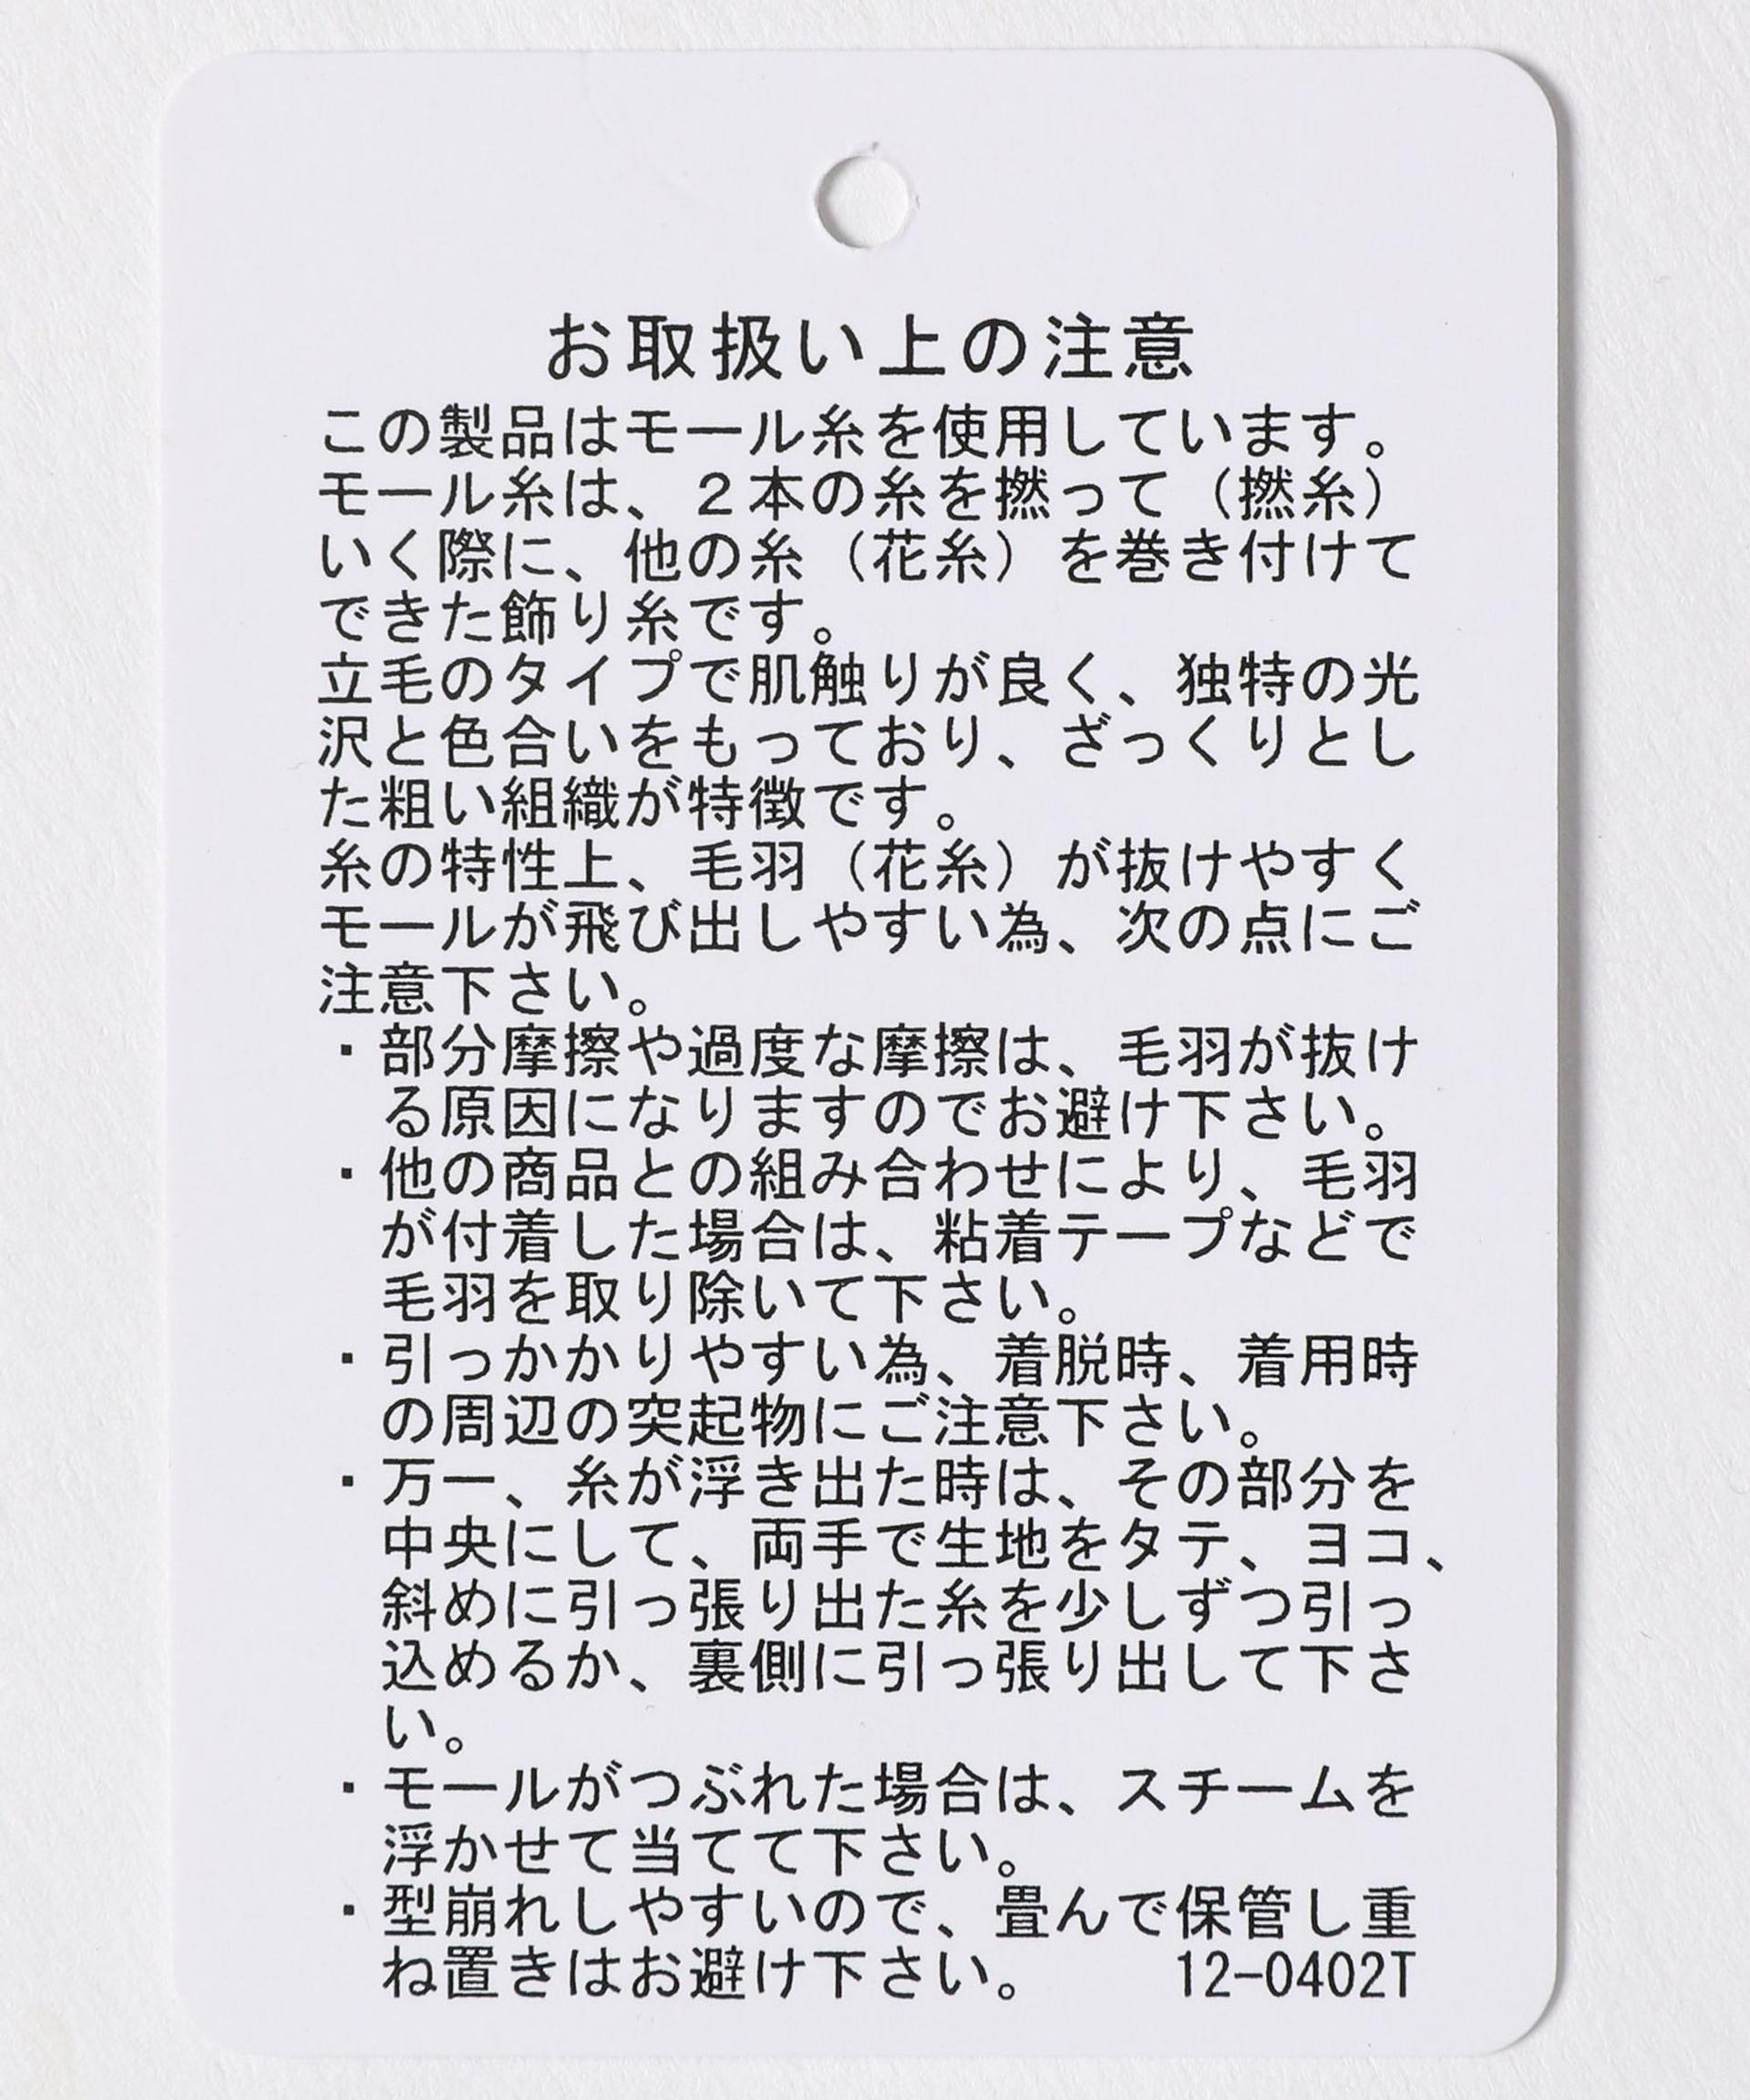 お取扱い上の注意
この製品はモール糸を使用しています。
モール糸は、２本の糸を撚って（撚糸）
いく際に、他の糸（花糸）を巻き付けて
できた飾り糸です。
立毛のタイプで肌触りが良く、独特の光
沢と色合いをもっており、ざっくりとし
た粗い組織が特徴です。
糸の特性上、毛羽（花糸）が抜けやすく
モールが飛び出しやすい為、次の点にご
注意下さい。
・部分摩擦や過度な摩擦は、毛羽が抜け
る原因になりますのでお避け下さい。
・他の商品との組み合わせにより、毛羽
が付着した場合は、粘着テープなどで
毛羽を取り除いて下さい。
・引っかかりやすい為、着脱時、着用時
の周辺の突起物にご注意下さい。
・万一、糸が浮き出た時は、その部分を
中央にして、両手で生地をタテ、ヨコ、
斜めに引っ張り出た糸を少しずつ引っ
込めるか、裏側に引っ張り出して下さ
い。
・モールがつぶれた場合は、スチームを
浮かせて当てて下さい。
・型崩れしやすいので、畳んで保管し重
ね置きはお避け下さい。 12-0402T